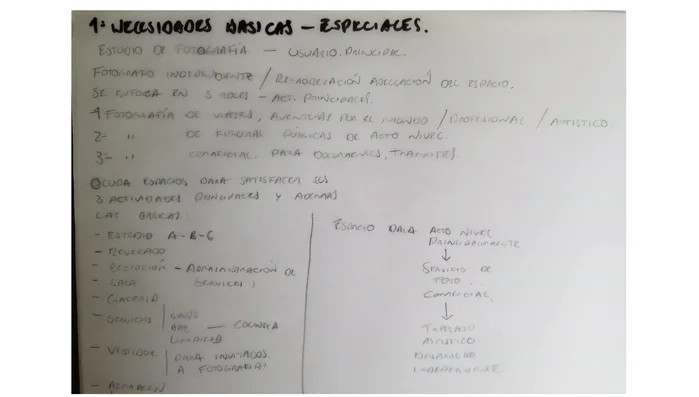 1- NECESIDADES BASICAS - ESPECIALES.
ESTUDIO DE FOTOGRAFÍA - USUARIO PRINCIPAL
FOTOGRAFO INDEPENDIENTE / REMODELACIÓN ADECUACIÓN DEL ESPACIO.
SE ENFOCA EN 3 - ACT. PRINCIPALES.
1 FOTOGRAFÍA DE VIAJES, AVENTURAS POR EL MUNDO / PROFESIONAL / ARTISTICO.
2- " DE PUBLICAS DE ALTO NIVEL.
3- " COMERCIAL. PARA DOCUMENTOS, TRAMITES.
ESPACIOS PARA SATISFACER LAS
3 ACTIVIDADES PRINCIPALES Y ADEMAS
LAS BASICAS:
- ESTUDIO A-B-C
- REVELADO
- RECEPCIÓN - ADMINISTRACIÓN DE
SERVICIOS
- SALA
- GALERIA
- SERVICIOS BAÑO
- COCINETA
LIMPIEZA
- VESTIDOR PARA INVITADOS
A FOTOGRAFIAR
- ALMACEN
ESPACIO PARA ALTO NIVEL
PRINCIPALMENTE
↓
SERVICIO DE
FOTO
COMERCIAL.
↓
TRABAJO
ARTISTICO
INDEPENDIENTE